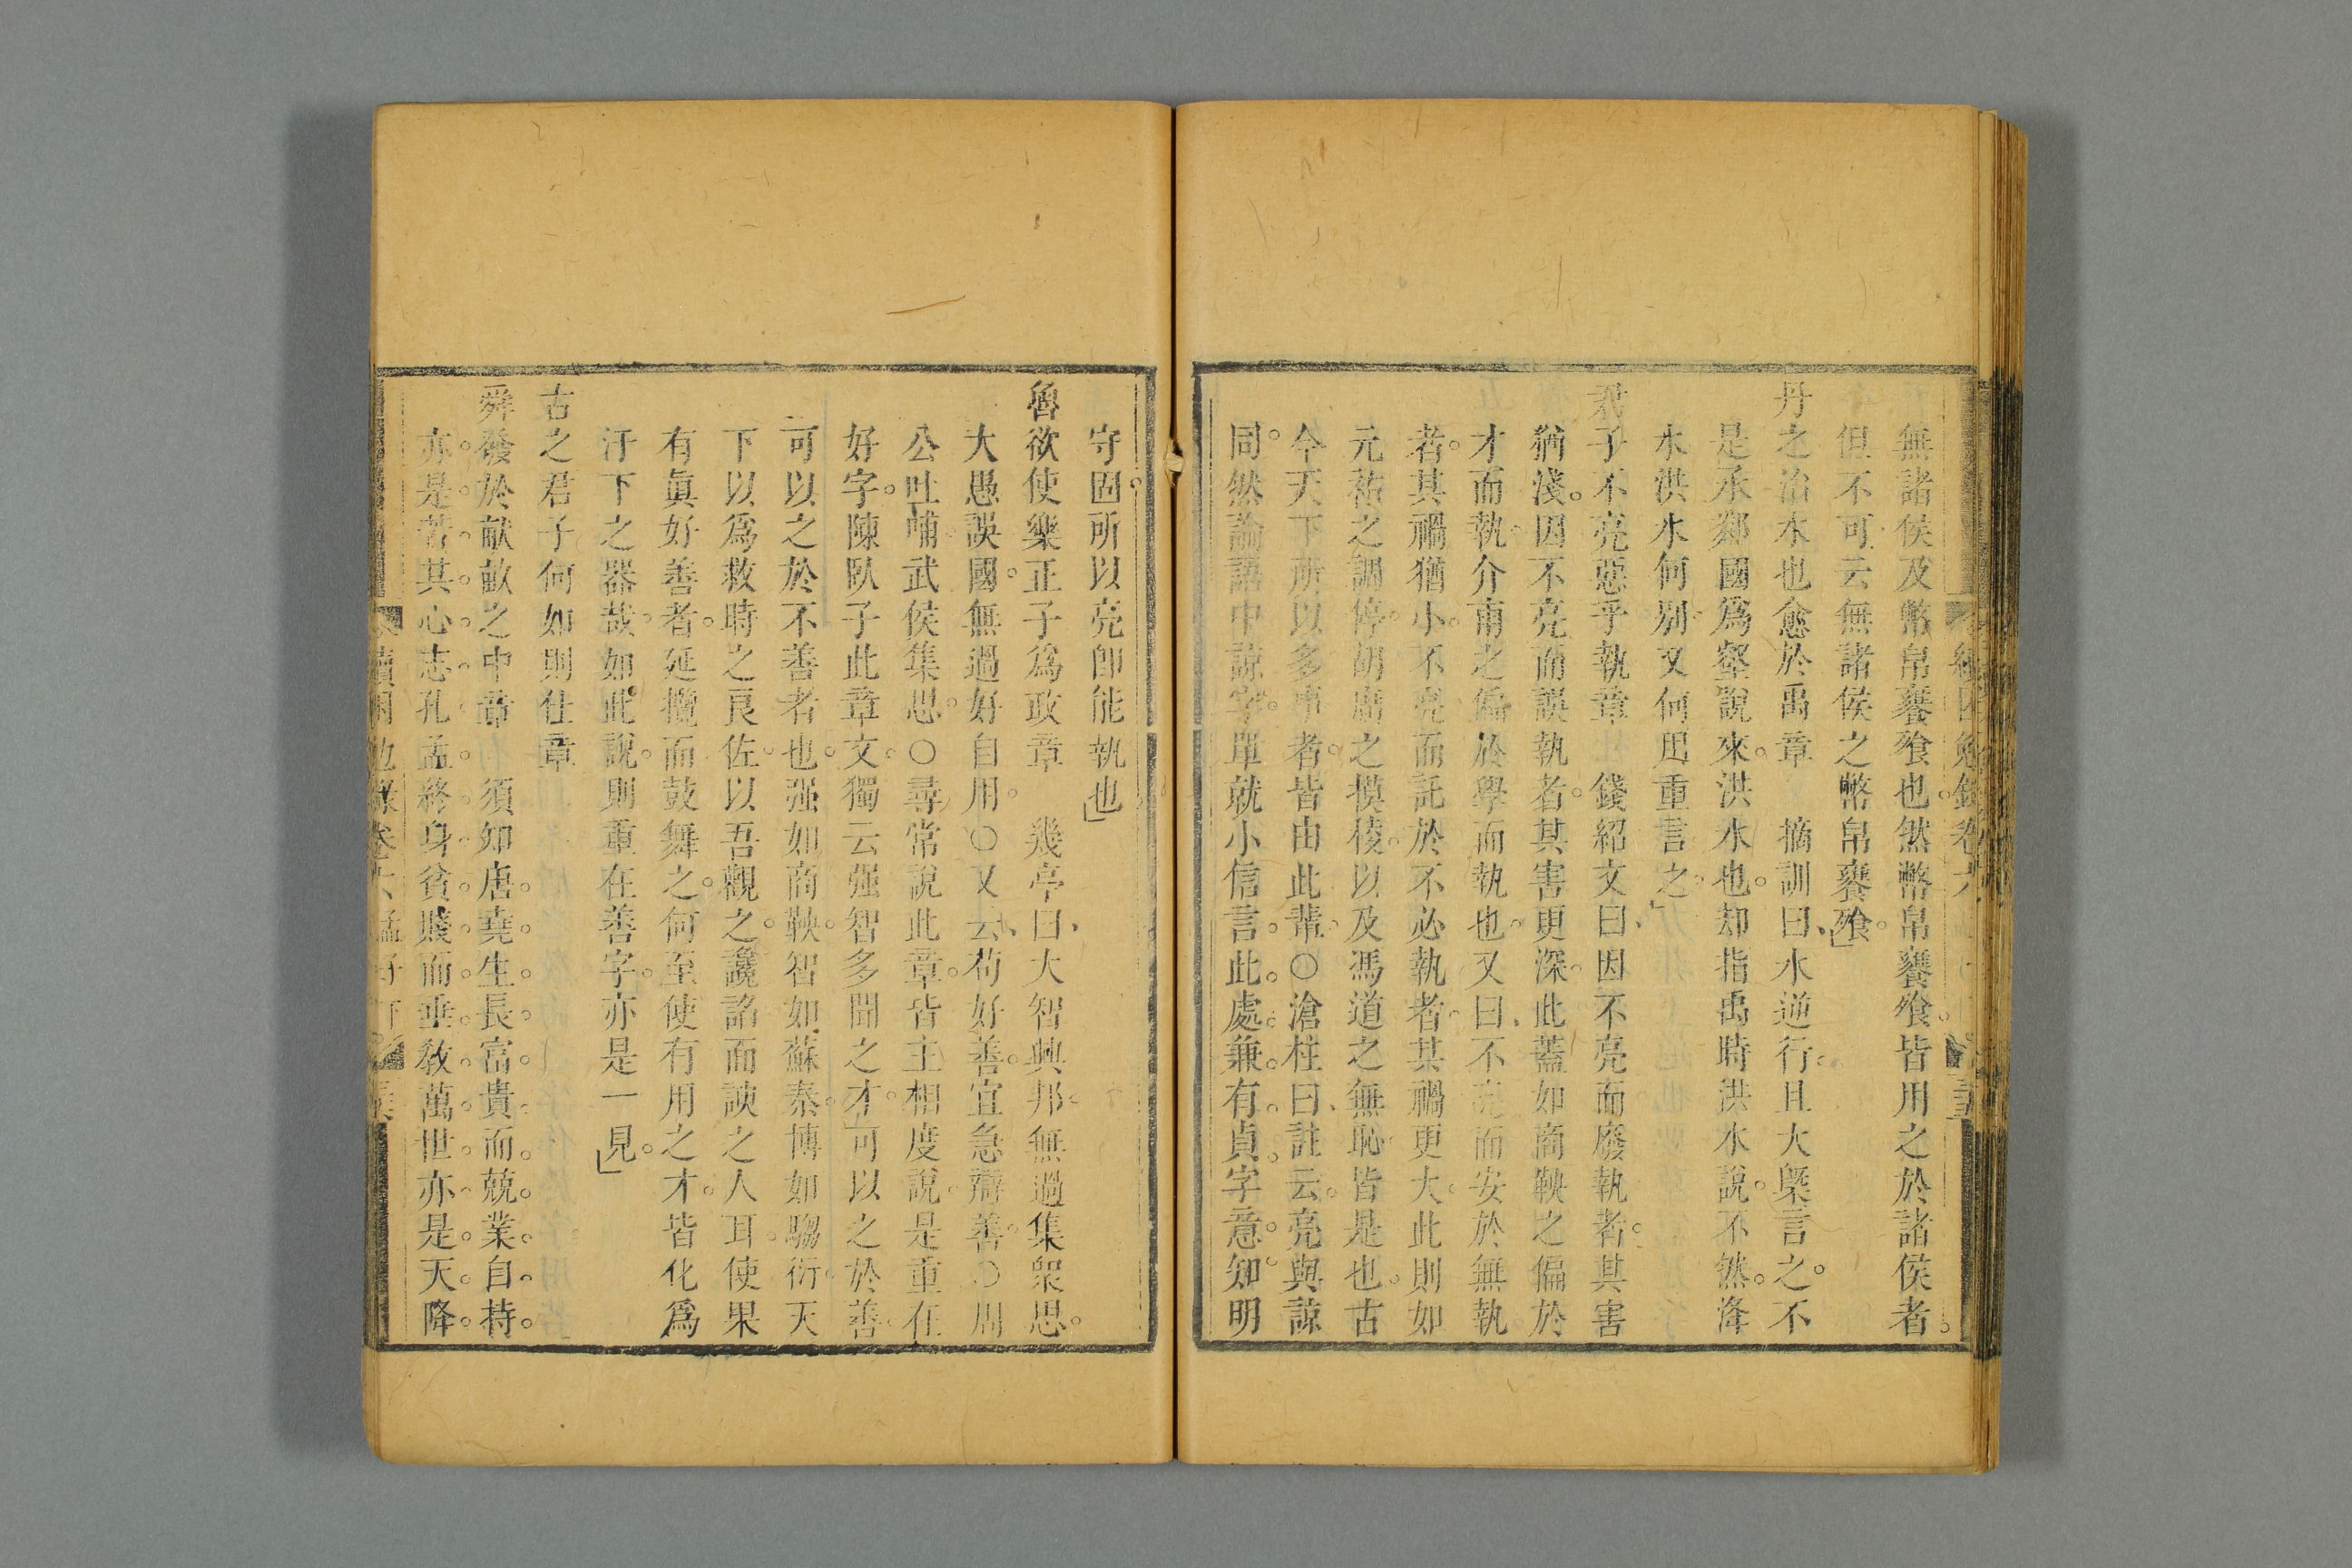 無諸侯及幣帛饔飧也然幣帛饔飧皆用之於諸侯者
但不可云無諸侯之幣帛饔飧
丹之治水也愈於禹章 摘訓曰水逆行且大槩言之不
是承鄰國爲壑說來洪水也却指禹時洪水說不然洚
水洪水何别又何思重言之
君子不亮惡乎執章 錢紹文曰因不亮而廢執者其害
猶淺因不亮而誤執者其害更深此蓋如商鞅之偏於
才而執介甫之偏於學而執也又曰不亮而安於無執
者其禍猶小不亮而託於不必執者其禍更大此則如
元祐之調停胡廣之摸稜以及馮道之無恥皆是也古
今天下所以多事者皆由此輩○滄柱曰註云亮與諒
同然論語中諒字單就小信言此處兼有貞字意知明
守固所以亮卽能執也
魯欲使樂正子爲政章 幾亭曰大智興邦無過集衆思
大愚誤國無過好自用○又云苟好善宜急辯善○周
公吐哺武侯集思○尋常說此章皆主相度說是重在
好字陳臥子此章文獨云强智多聞之才可以之於善
可以之於不善者也强如商鞅智如蘇秦博如騶衍天
下以爲救時之良佐以吾觀之讒諂面諛之人耳使果
有眞好善者延攬而鼓舞之何至使有用之才皆化爲
汙下之器哉如此說則重在善字亦是一見
古之君子何如則仕章
舜發於畎畝之中章 須知唐堯生長富貴而兢業自持
亦是苦其心志孔孟終身貧賤而垂教萬世亦是天降